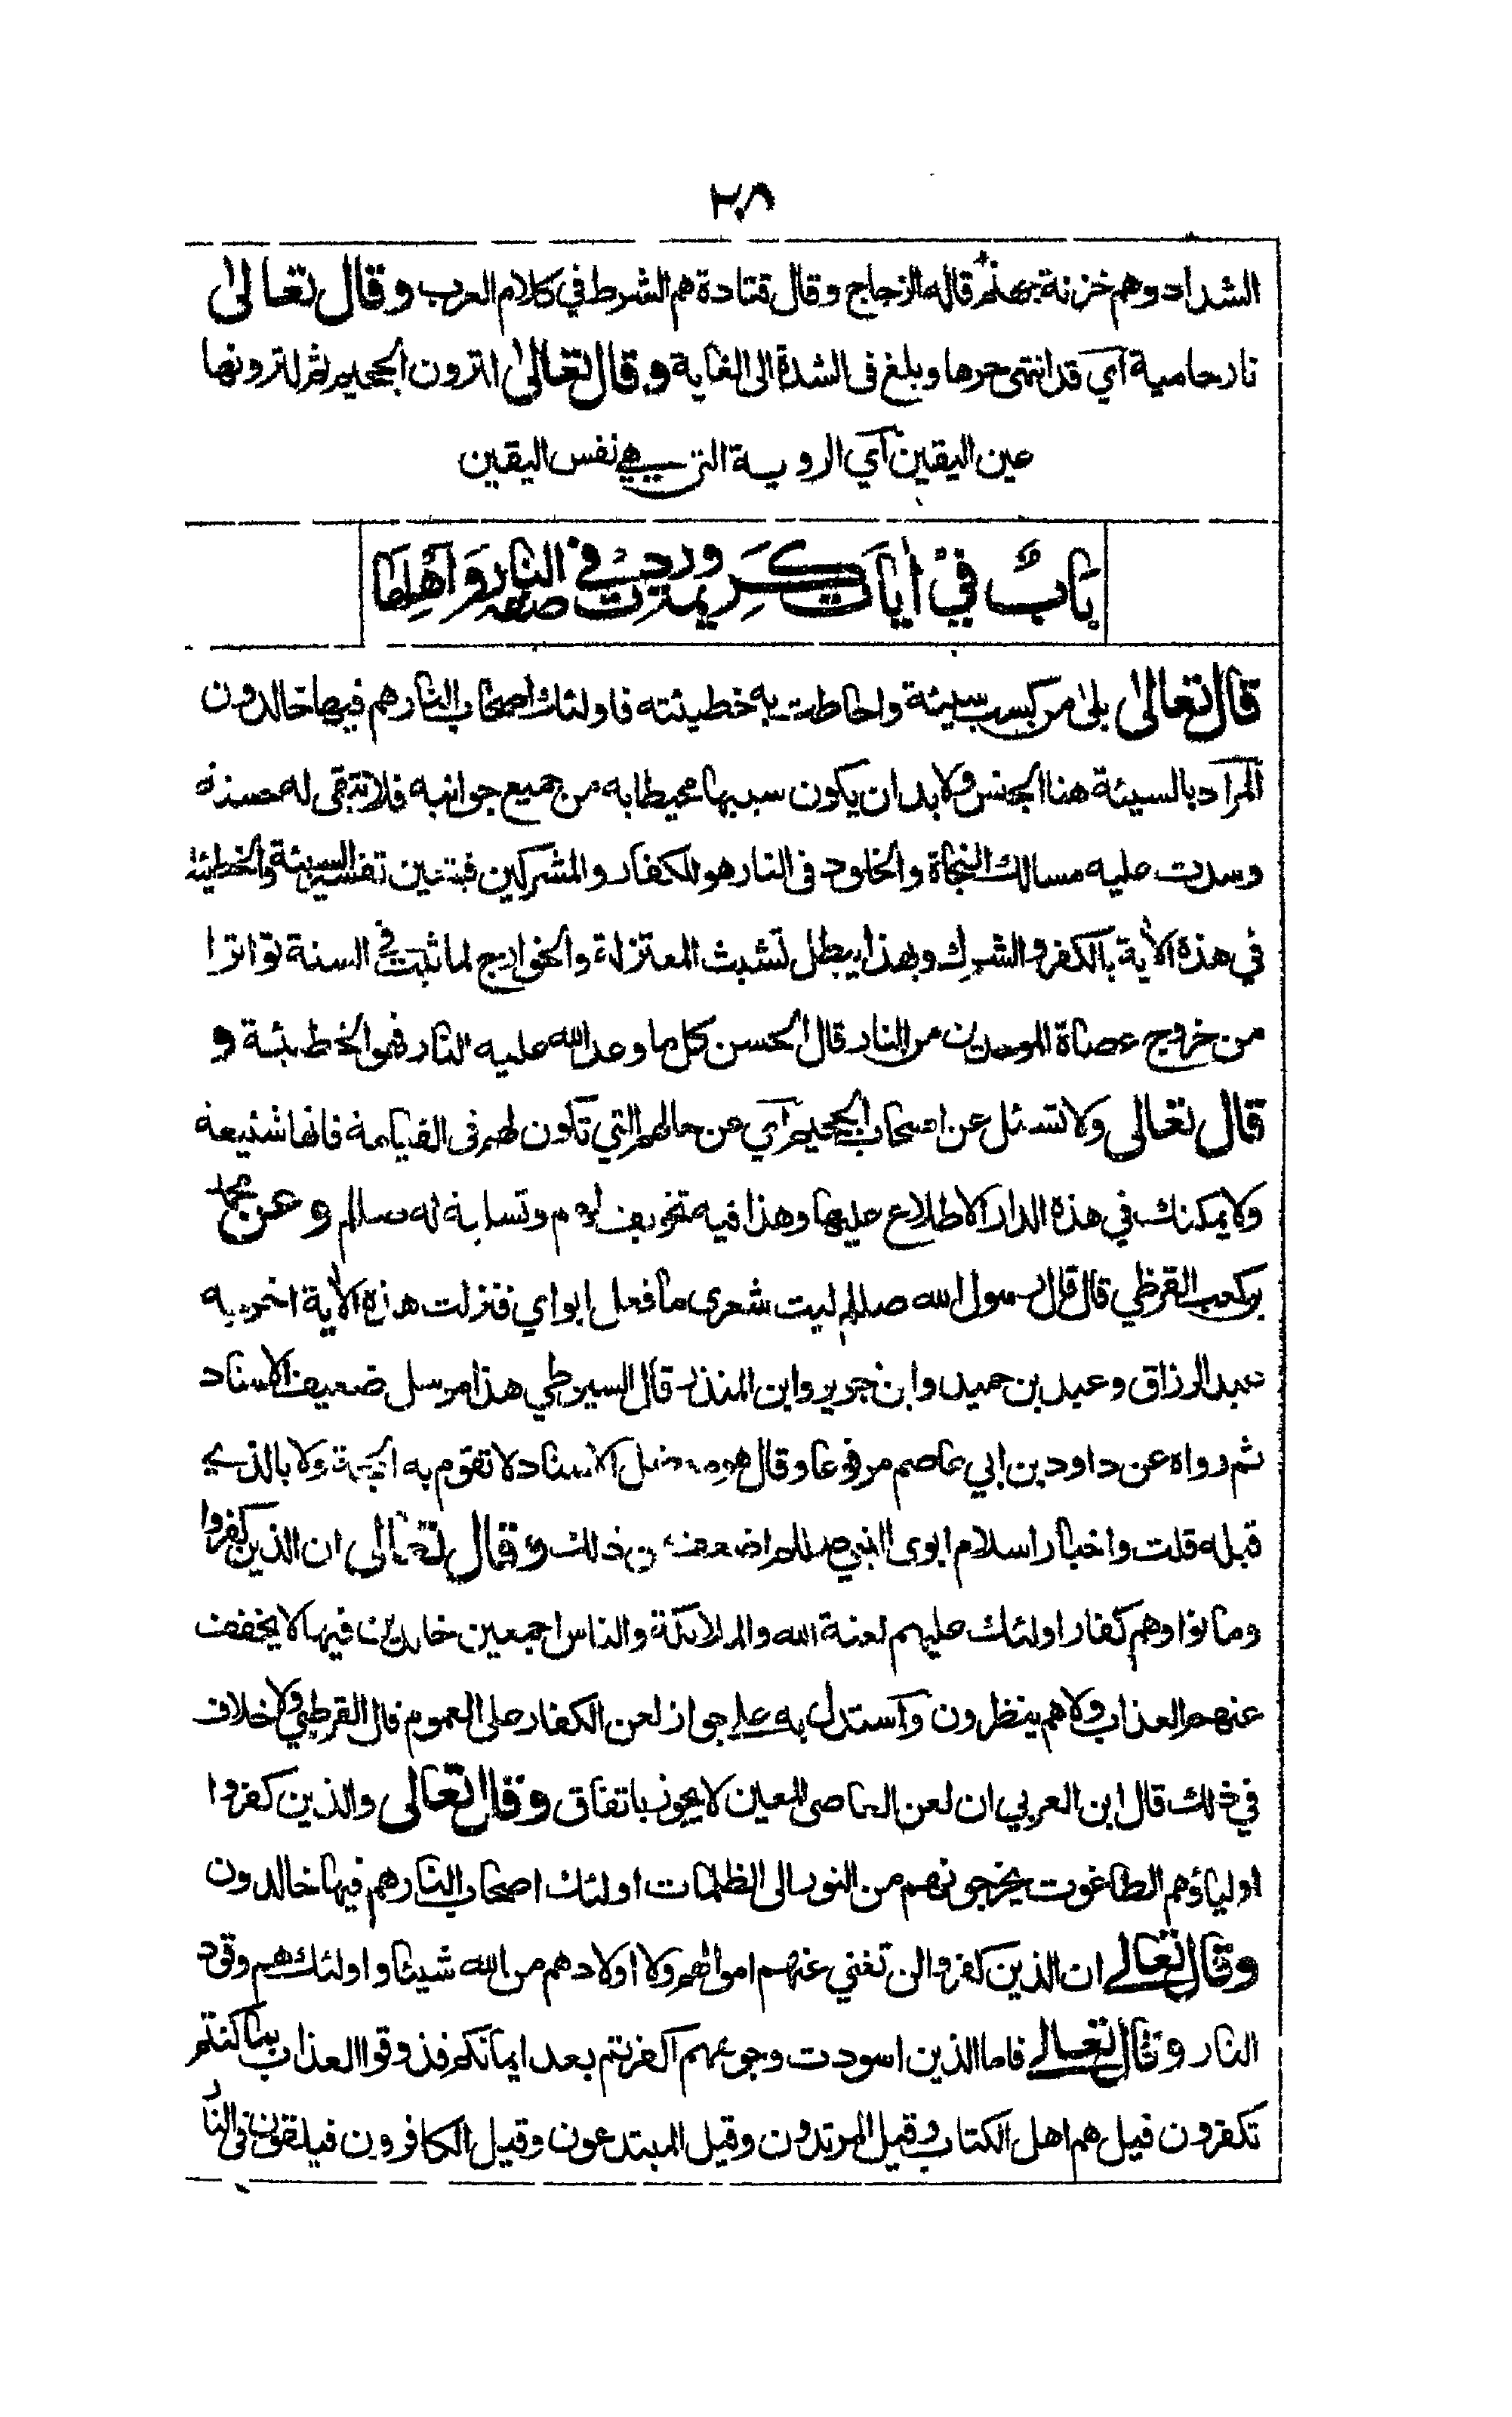 ٢٠٨
الشداد وهم خزنة جهنم قاله الزجاج وقال قتادة هم الشرط في كلام العرب وقال تعالى
نار حامية آي قد انتهى حرها وبلغ فى الشدة الى الغاية وقال تعالى لترون الجحيم ثم لترونها
عين اليقين آي الروية التي هي نفس اليقين
باب في أيات كريمة وردت في صفة النار وأهلها
قال تعالى بلى من كسب سيئة واحاطت به خطيئته فاولئك اصحاب النار هم فيها خالدون
المراد بالسيئة هنا الجنس ولا بد ان يكون سببها محيطا به من جميع جوانبه فلا تبقى له حسنة
وسدت عليه مسالك النجاة والخلود فى النار هو للكفار والمشركين فيتعين تفسير السيئة والخطيئة
في هذه الأية بالكفر والشرك وبهذا يبطل تشبث المعتزلة والخوارج لما ثبت في السنة تواترا
من خروج عصاة الموحدين من النار قال الحسن كل ما وعد الله عليه النار فهو الخطيئة و
قال تعالى ولا تسئل عن اصحاب الجحيم آي عن حالهم التي تكون لهم فى القيامة فانها شنيعة
ولا يمكنك في هذه الدار الاطلاع عليها وهذا فيه تخويف لهم وتسلية له صللم وعن محمد
بن كعب القرظي قال قال رسول الله صللم ليت شعرى ما فعل ابواي فنزلت هذه الأية اخرجه
عبد الرزاق وعبد بن حميد وابن جرير وابن المنذر قال السيوطي هذا مرسل ضعيف الاسناد
ثم رواه عن داود بن ابي عاصم مرفوعا وقال هو معضل الاسناد لا تقوم به الحجة ولا بالذي
قبله قلت واخبار اسلام ابوى النبي صللم اضعف من ذلك وقال تعالى ان الذين كفروا
وماتوا وهم كفار اولئك عليهم لعنة الله والملائكة والناس اجمعين خالدين فيها لا يخفف
عنهم العذاب ولا هم ينظرون وآستدل به على جواز لعن الكفار على العموم قال القرطبي ولا خلاف
في ذلك قال ابن العربي ان لعن العاصى المعين لا يجوز باتفاق وقال تعالى والذين كفروا
اولياؤهم الطاغوت يخرجونهم من النور الى الظلمات اولئك اصحاب النار هم فيها خالدون
وقال تعالى ان الذين كفروا لن تغني عنهم اموالهم ولا اولادهم من الله شيئا واولئك هم وقود
النار وقال تعالى فاما الذين اسودت وجوههم اكفرتم بعد ايمانكم فذوقوا العذاب بما كنتم
تكفرون قيل هم اهل الكتاب وقيل المرتدون وقيل المبتدعون وقيل الكافرون فيلقون فى النار